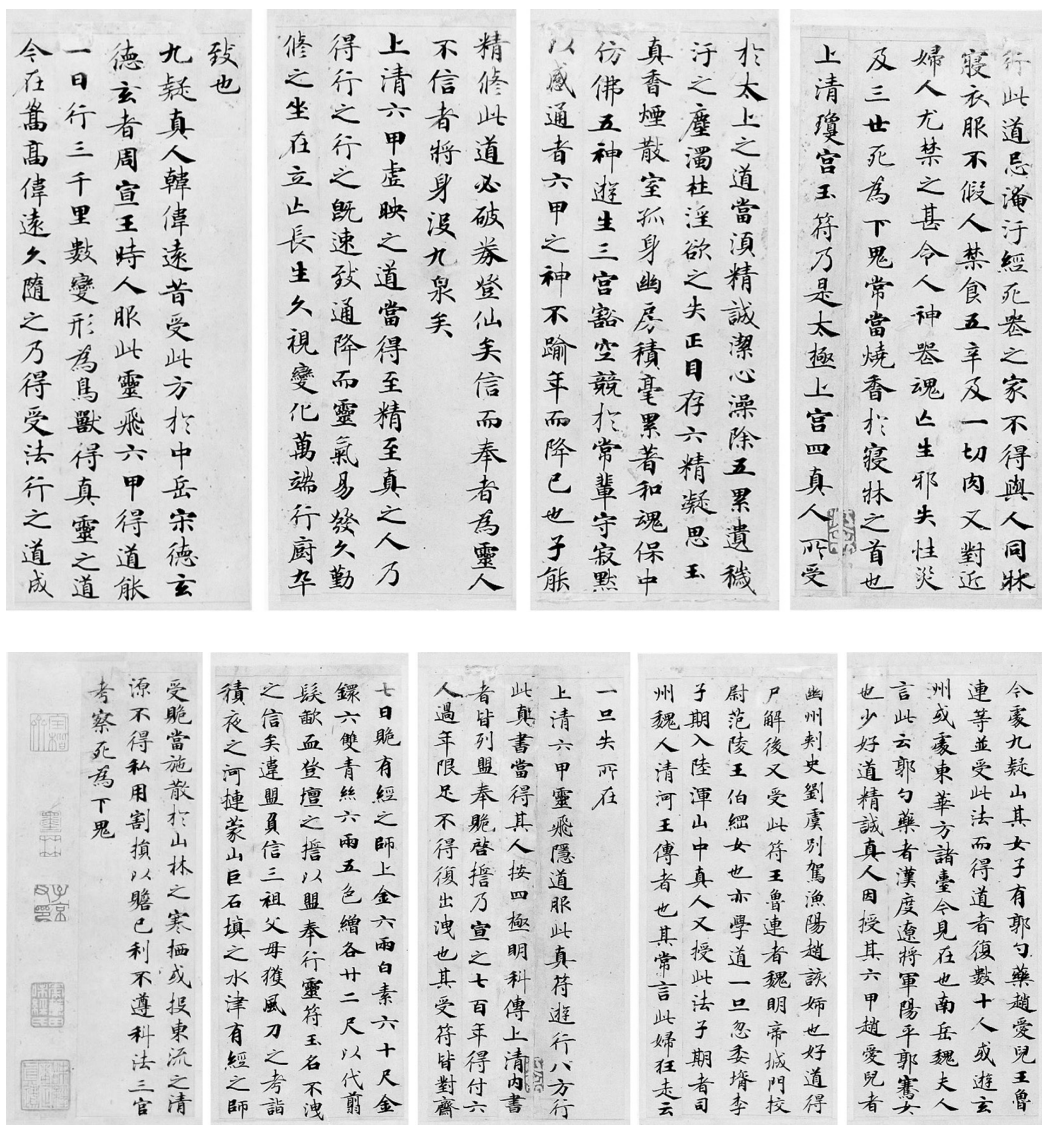 行此道忌淹汙經死喪之家不得與人同牀
寢衣服不假人禁食五辛及一切肉又對近
婦人尤禁之甚令人神喪魂亡生邪失性災
及三世死為下鬼常當燒香於寢牀之首也
上清瓊宮玉符乃是太極上宮四真人所受
於太上之道當湏精誠潔心澡除五累遺穢
汙之塵濁杜淫欲之失正目存六精凝思玉
真香煙散室孤身幽房積毫累著和魂保中
仿佛五神遊生三宮豁空競於常輩守寂默
以感通者六甲之神不踰年而降已也子能
精修此道必破券登仙矣信而奉者為靈人
不信者將身沒九泉矣
上清六甲虛映之道當得至精至真之人乃
得行之行之既速致通降而靈氣易發久勤
修之坐在立亡長生久視變化萬端行廚卒
致也
九疑真人韓偉遠昔受此方於中岳宋德玄
德玄者周宣王時人服此靈飛六甲得道能
一日行三千里數變形為鳥獸得真靈之道
今在嵩高偉遠久隨之乃得受法行之道成
今處九疑山其女子有郭勺藥趙愛兒王魯
連等並受此法而得道者復數十人或遊玄
州或處東華方諸臺今見在也南岳魏夫人
言此云郭勺藥者漢度遼將軍陽平郭騫女
也少好道精誠真人因授其六甲趙愛兒者
幽州刺史劉虞別駕漁陽趙該姊也好道得
尸解後又受此符王魯連者魏明帝城門校
尉范陵王伯綱女也亦學道一旦忽委壻李
子期入陸渾山中真人又授此法子期者司
州魏人清河王傳者也其常言此婦狂走云
一旦失所在
上清六甲靈飛隱道服此真符遊行八方行
此真書當得其人按四極明科傳上清內書
者皆列盟奉貺啓誓乃宣之七百年得付六
人過年限足不得復出洩也其受符皆對齋
七日貺有經之師上金六兩白素六十尺金
鐶六雙青絲六兩五色繒各廿二尺以代翦
髮歃血登壇之誓以盟奉行靈符玉名不洩
之信矣違盟負信三祖父母獲風刀之考詣
積夜之河揵蒙山巨石填之水津有經之師
受貺當施散於山林之寒栖或投東流之清
源不得私用割損以贍己利不遵科法三官
考察死為下鬼